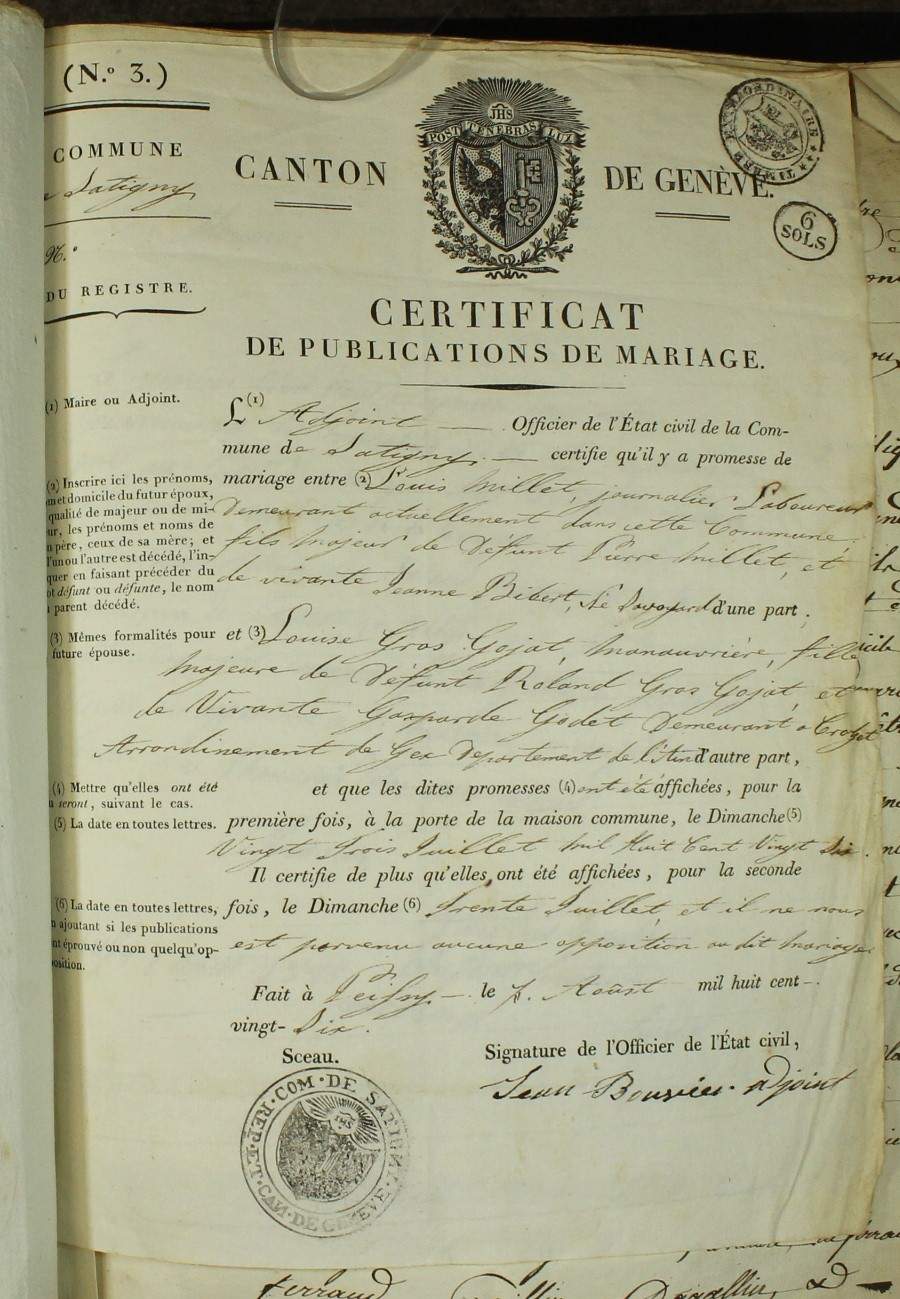 (N.º 3.)
COMMUNE
Satigny
N.º
DU REGISTRE.
JHS
POST TENEBRAS LUX
CANTON DE GENÈVE.
TIMBRE EXTRAORDINAIRE
6
SOLS
CERTIFICAT
DE PUBLICATIONS DE MARIAGE.
(1) Maire ou Adjoint.
L'(1) Adjoint — Officier de l'État civil de la Com-
mune de Satigny — certifie qu'il y a promesse de
(2) Inscrire ici les prénoms,
et domicile du futur époux,
qualité de majeur ou de mi-
les prénoms et noms de
père, ceux de sa mère; et
l'un ou l'autre est décédé, l'in-
quer en faisant précéder du
défunt ou défunte, le nom
parent décédé.
mariage entre (2) Louis Millet, journalier Laboureur
Demeurant actuellement dans cette Commune,
fils Majeur de Défunt Pierre Millet, et
de vivante Jeanne Bibert, d'une part;
(3) Mêmes formalités pour
future épouse.
et (3) Louise Gros Gojat, Manouvrière, fille
Majeure de Défunt Roland Gros Gojat, et
de Vivante Gasparde Godet Demeurant à Crozet
Arrondissement de Gex Département de l'Ain d'autre part,
(4) Mettre qu'elles ont été
seront, suivant le cas.
et que les dites promesses (4) ont été affichées, pour la
(5) La date en toutes lettres.
première fois, à la porte de la maison commune, le Dimanche (5)
Vingt Trois Juillet mil Huit Cent Vingt Six.
Il certifie de plus qu'elles ont été affichées, pour la seconde
(6) La date en toutes lettres,
ajoutant si les publications
éprouvé ou non quelqu'op-
position.
fois, le Dimanche (6) Trente Juillet, et il ne nous
est parvenu aucune opposition au dit mariage
Fait à Peissy — le Août mil huit cent
vingt-Six.
Sceau.
Signature de l'Officier de l'État civil,
Jean Bouvier adjoint
COM · DE SATIGNY · REP. ET · CAN · DE GENEVE ·
JHS